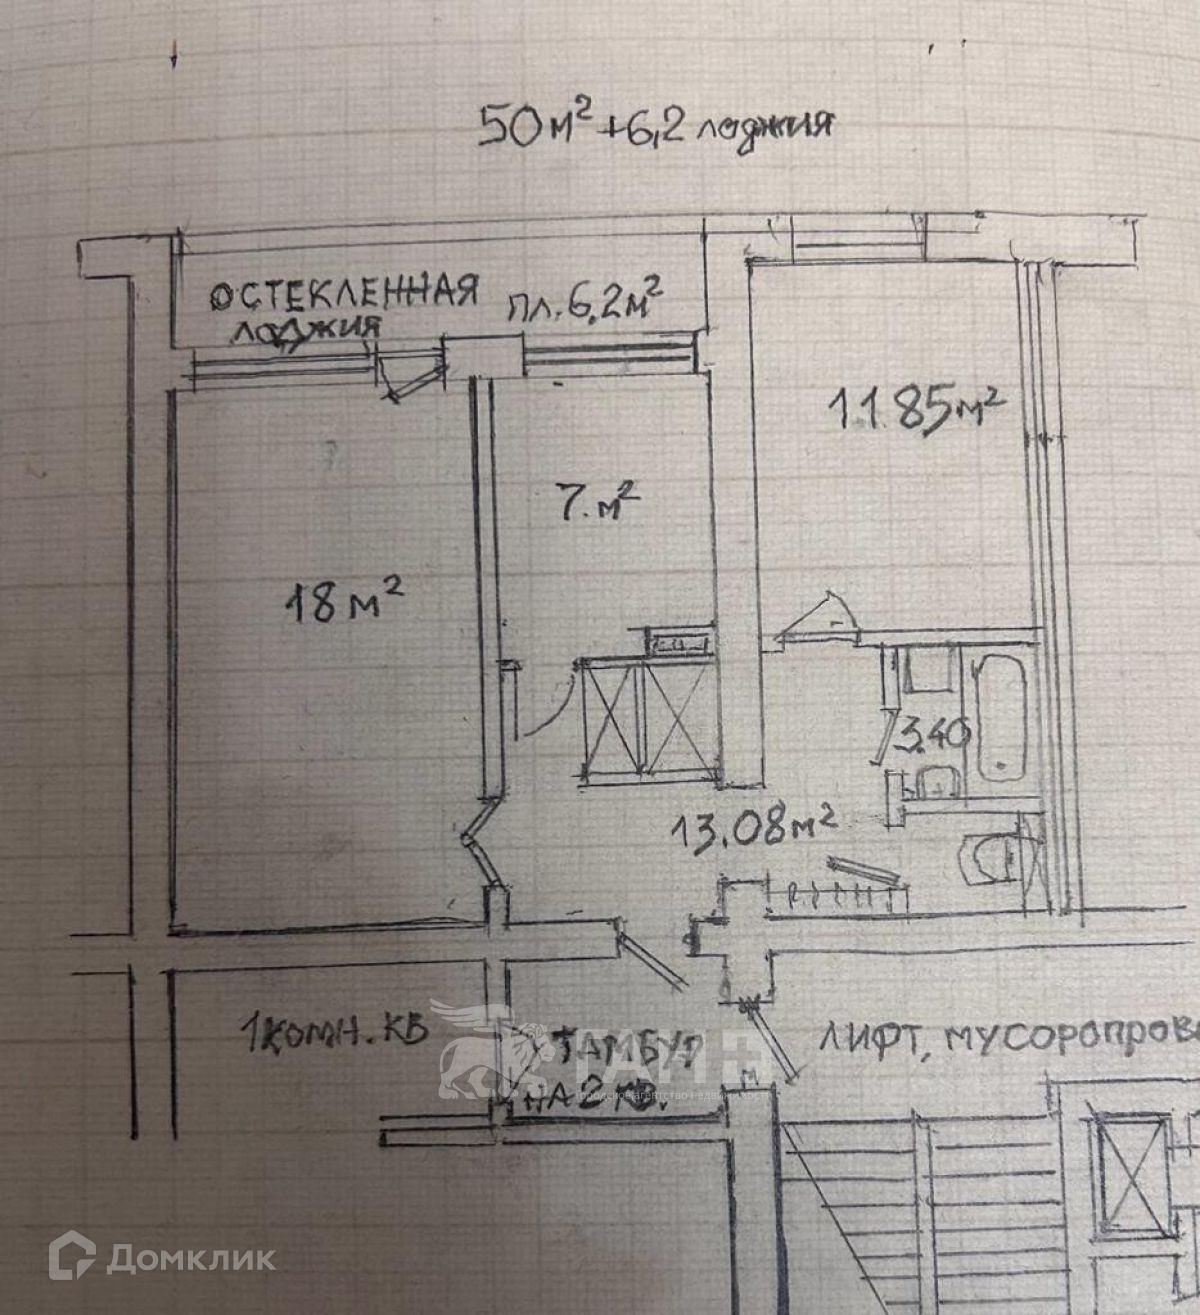 50м² +6,2 лоджия
ОСТЕКЛЕННАЯ
лоджия
пл. 6.2м²
11.85м²
7.м²
18 м²
3.40
13.08м²
1КОМН. КВ
ТАМБУР
НА 2 КВ.
ЛИФТ, МУСОРОПРОВ
ТАИН
городское агентство недвижимости
Домклик